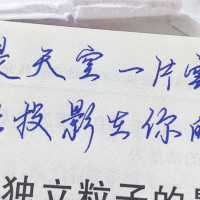 是天空一片雲
投影在你的
独立粒子的